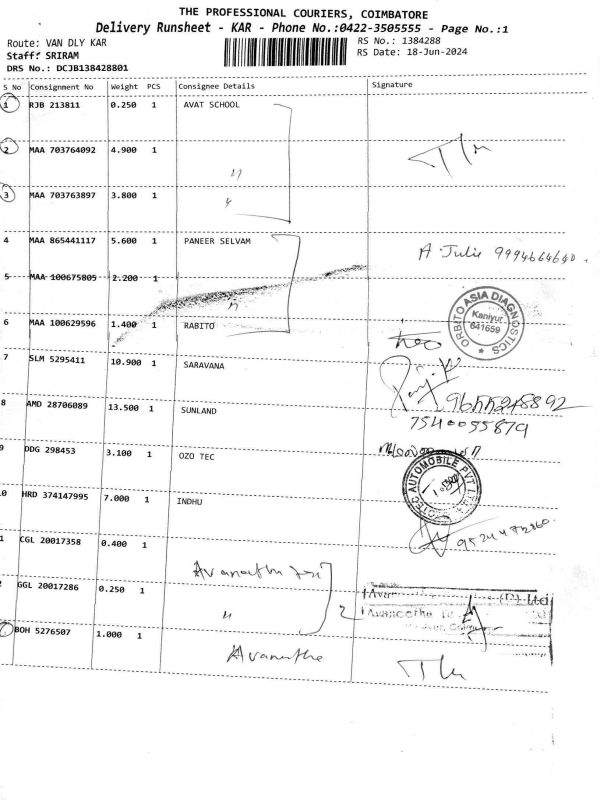 THE PROFESSIONAL COURIERS, COIMBATORE
Delivery Runsheet - KAR - Phone No.:0422-3505555 - Page No.:1
Route: VAN DLY KAR
RS No.: 1384288
Staff: SRIRAM
RS Date: 18-Jun-2024
DRS No.: DCJB138428801
S No Consignment No Weight PCS Consignee Details Signature
1 RJB 213811 0.250 1 AVAT SCHOOL
2 MAA 703764092 4.900 1 "
3 MAA 703763897 3.800 1 "
4 MAA 865441117 5.600 1 PANEER SELVAM A. Julie 9994664640.
5 MAA 100675805 2.200 1 "
ORBITO ASIA DIAGNOSTICS
Kaniyur
641659
6 MAA 100629596 1.400 1 RABITO
7 SLM 5295411 10.900 1 SARAVANA
8 AMD 28706089 13.500 1 SUNLAND
7540055879
9 DDG 298453 3.100 1 OZO TEC
AUTOMOBILE PVT
0 HRD 374147995 7.000 1 INDHU
1 CGL 20017358 0.400 1
2 GGL 20017286 0.250 1 "
(P) Ltd
BOH 5276507 1.000 1